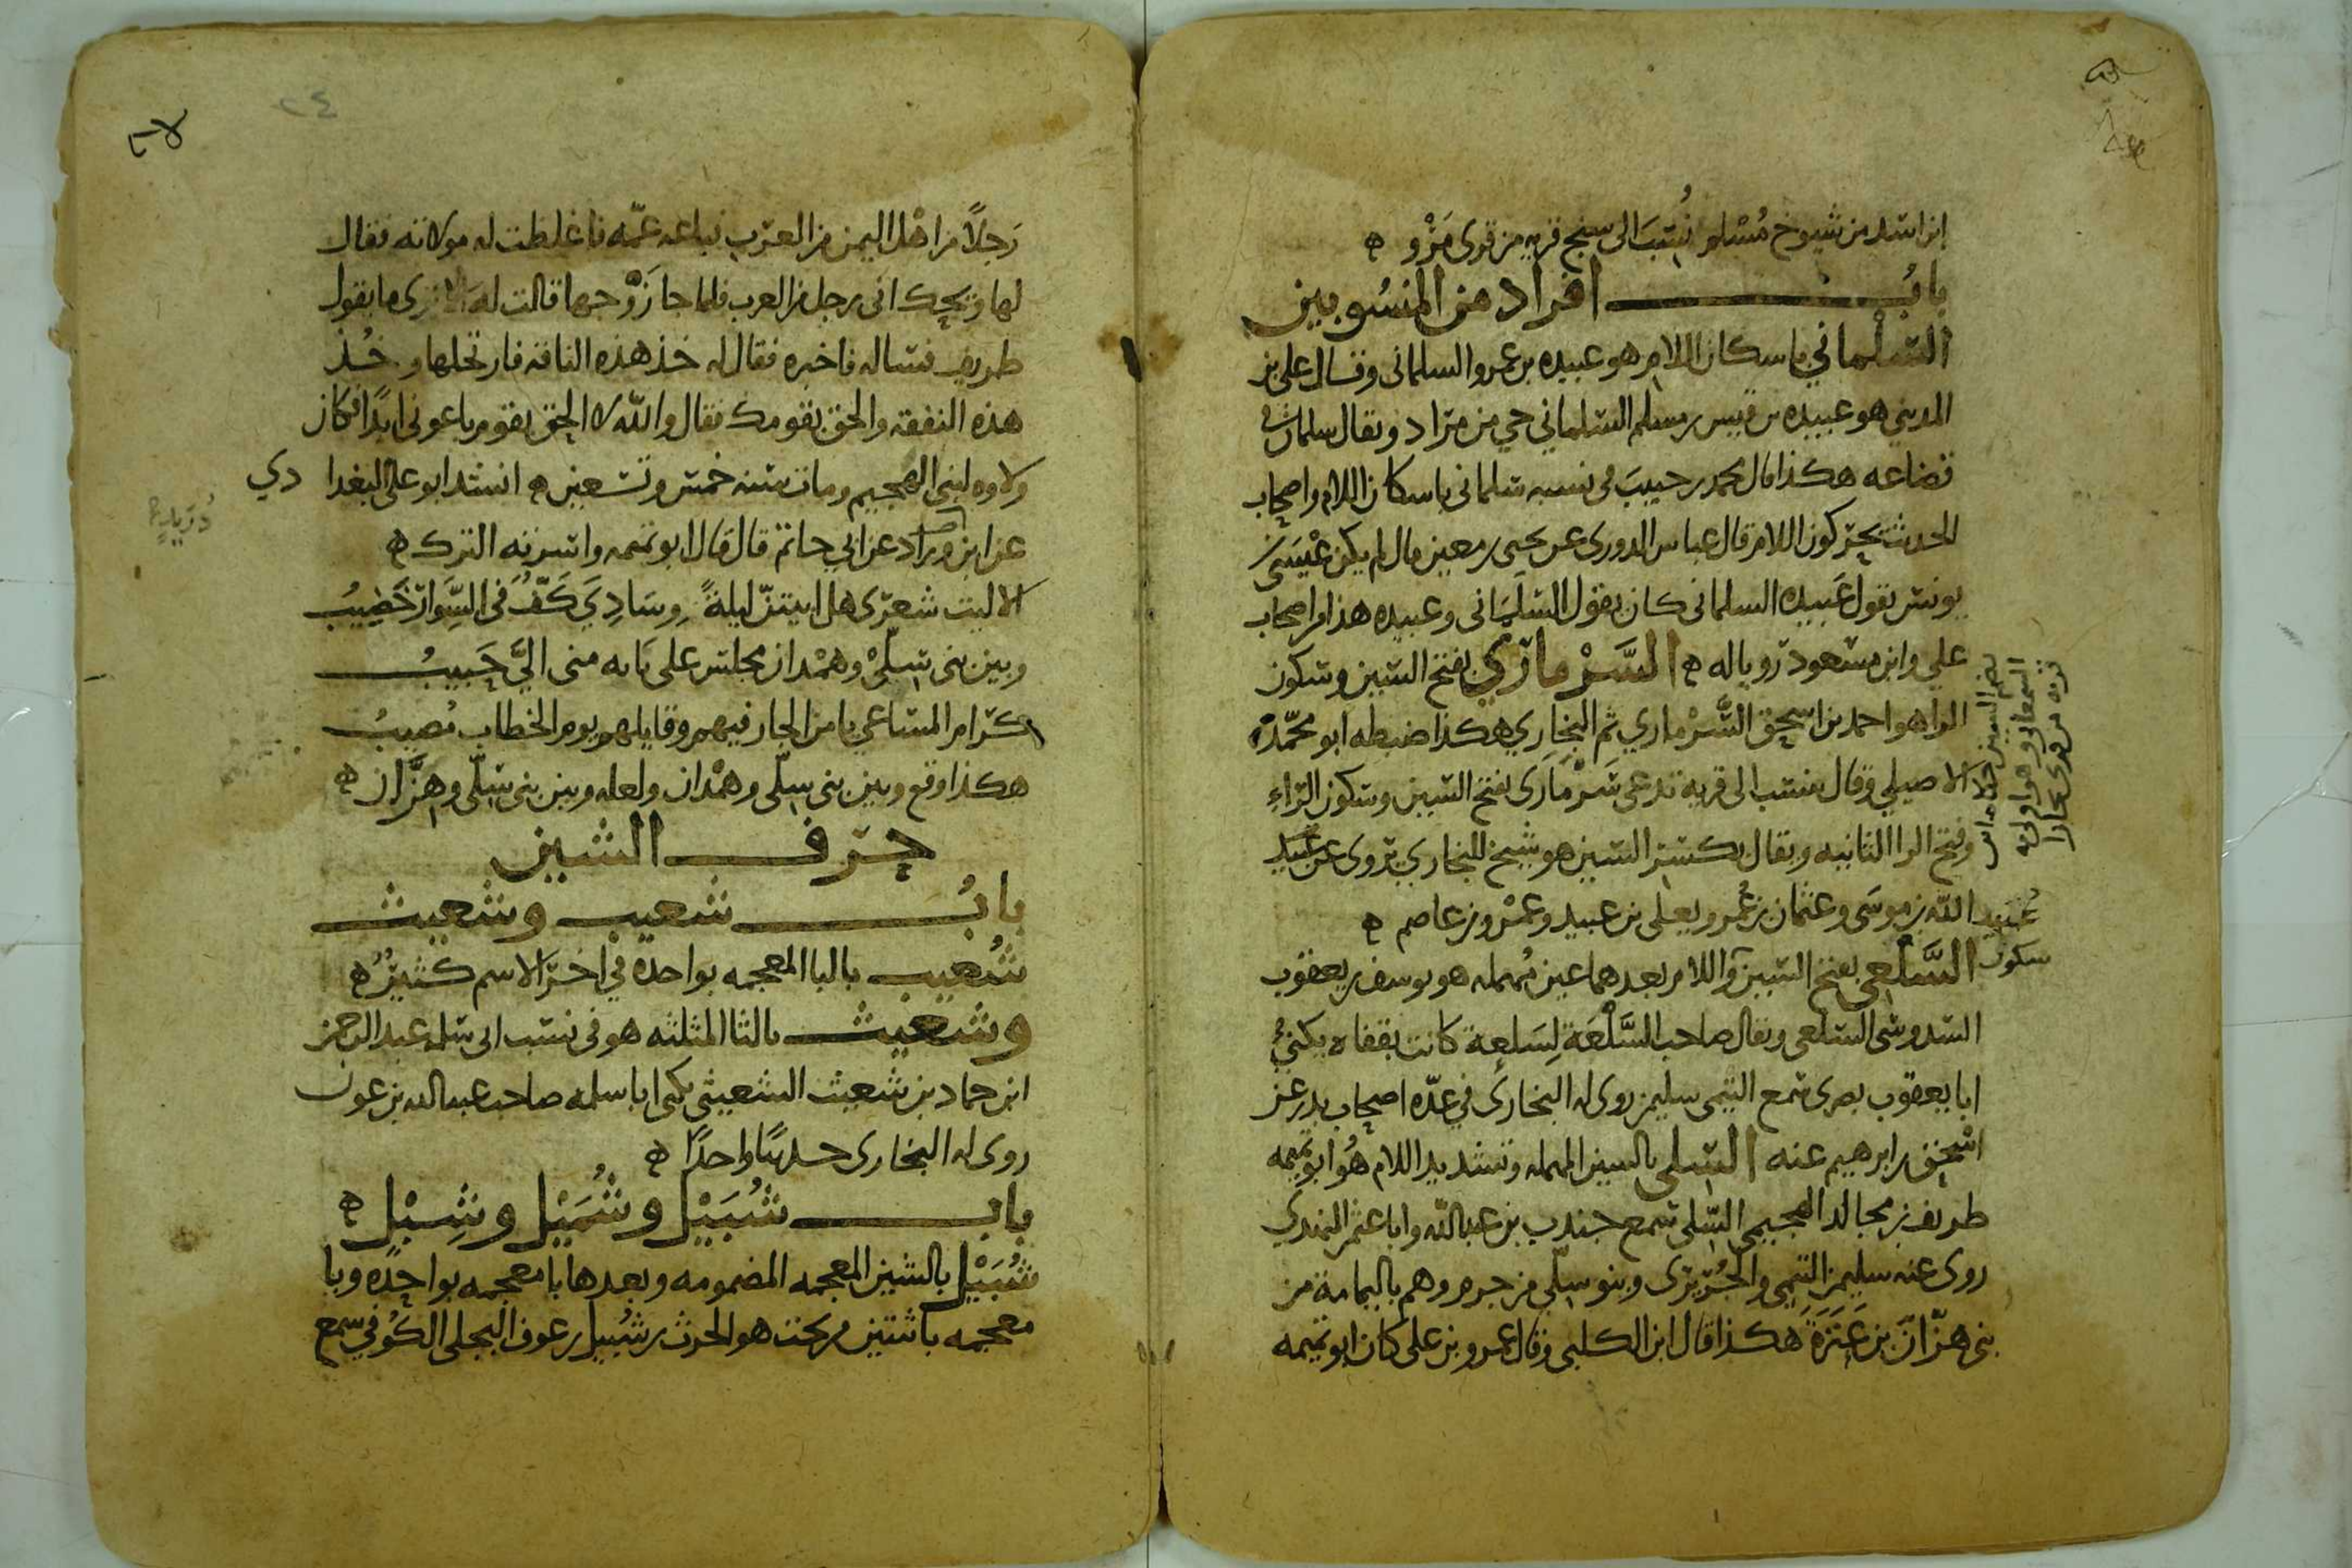 ابن اسد من شيوخ مسلم نُسِبَ الى سنج قريه من قرى مَرْو ه
بابُ افراد من المنسُوبين
السَّلْماني باسكان اللام هو عبيده بن عمرو السلماني وقال علي بن
المديني هو عبيده بن قيس بن مسلم السَّلماني حي من مراد ويقال سلمان في
قضاعه هكذا قال محمد بن حبيب في نسبه سَلماني باسكان اللام واصحاب
الحديث يحركون اللام قال عباس الدوري عن يحيى بن معين قال لم يكن عيسى بن
يونس يقول عَبيده السلماني كان يقول السَّلَماني وعبيده هذا من اصحاب
علي وابن مسعود رويا له ه السَّرْماري بفتح السين وسكون
الرا هو احمد بن اسحق السَّرْماري ثم البخاري هكذا ضبطه ابو محمّد
الاصيلي وقال ينسب الى قرية تدعى سَرْمارَى بفتح السين وسكون الراء
وفتح الرا الثانيه ويقال بكسر السين هو شيخ للبخاري يروى عن عبيد
عُبيد الله بن موسى وعثمان بن عُمر ويعلى بن عبيد وعمرو بن عاصم ه
سكون السَّلْعي بفتح السين واللام بعدهما عين مُهمله هو يوسف بن يعقوب
السَّدوسي السَّلعي ويقال صاحب السَّلْعَة لِسَلعة كانت بقفاه يكنى
ابا يعقوب بصري سمع التيمي سليمن روى له البخاري في عدّه اصحاب بدر عن
اسحق بن ابرهيم عنه السِّلّي بالسين المهمله وتشديد اللام هُو ابو تميمه
طريف بن مجالد الهجيمي السِّلّي سمع جندب بن عبد الله وابا عثمن النهدي
روى عنه سليمن التيمي والجُريرى وبنو سِلّي من جرم وهم باليمامة من
بني هزّان بن عَنَزَة هكذا قال ابن الكلبي وقال عمرو بن علي كان ابو تميمه
رَجلاً من اهل اليمن من العرب فباعه عمّه فاغلظت له مولاته فقال
لها ويحك اني رجل من العرب فلما جا زَوْجها قالت له الا ترى ما يقول
طريف فساله فاخبره فقال له خذ هذه الناقه فارتحلها وخُذ
هذه النفقه والحق بقومك فقال والله لا الحق بقوم باعوني ابداً فكان
ولاوه لبني الهجيم ومات سنه خمس وتسعين ه انشد ابو علي البغدا دي
عن ابن دريد عن ابي حاتم قال قال ابو تميمه واسرته الترك ه
دُرَيدٍ
الا ليت شعرى هل ابيتنّ ليلةً وسَادِيَ كَفٌّ في السِّوار خَضِيبُ
وبين بني سِلّي وهمْدان مجلس على نَايه مني الَيَّ حَبيبُ
كرام المساعي يامن الجار فيهم وقايلهم يوم الخطاب مُصيبُ
هكذا وقع وبين بني سِلّى وهمْدان ولعله وبين بني سِلّى وهِزَّان ه
حرف الشين
بابُ شعيب وشعيث
شُعيب بالبا المعجمه بواحدة في اخر الاسم كثيرُ ه
وشعيث بالثا المثلثه هو في نسب ابي سلمه عبد الرحمن
ابن حماد بن شعيث الشعيثي يكنى ابا سلمه صاحب عبد الله بن عون
روى له البخارى حديثًا واحدًا ه
باب شُبَيْل وشُمَيْل وشِبْل ه
شُبَيْل بالشين المعجمه المضمومه وبعدها با معجمه بواحدة ويا
معجمه باثنتين من تحت هو الحرث بن شُبيل بن عوف البجلي الكُوفي سمع